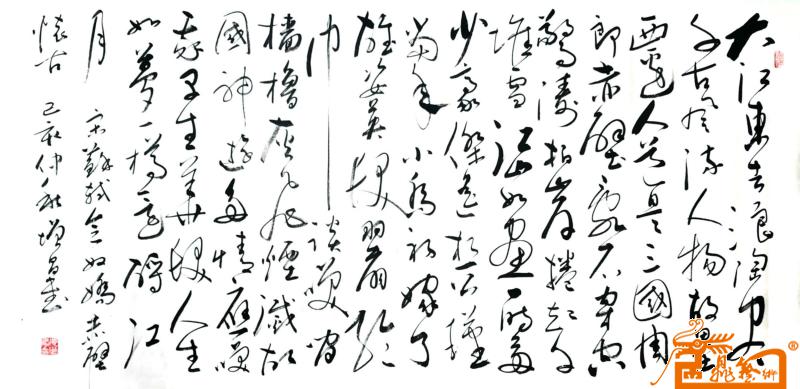 大江東去浪淘盡
千古風流人物故壘
西邊人道是三國周
郎赤壁亂石穿空
驚濤拍岸捲起千
堆雪江山如畫一時多
少豪傑遙想公瑾
當年小喬初嫁了
雄姿英發羽扇綸
巾談笑間
檣櫓灰飛煙滅故
國神遊多情應笑
我早生華髮人生
如夢一樽還酹江
月 宋蘇軾念奴嬌赤壁
懷古 己亥仲秋增昌書